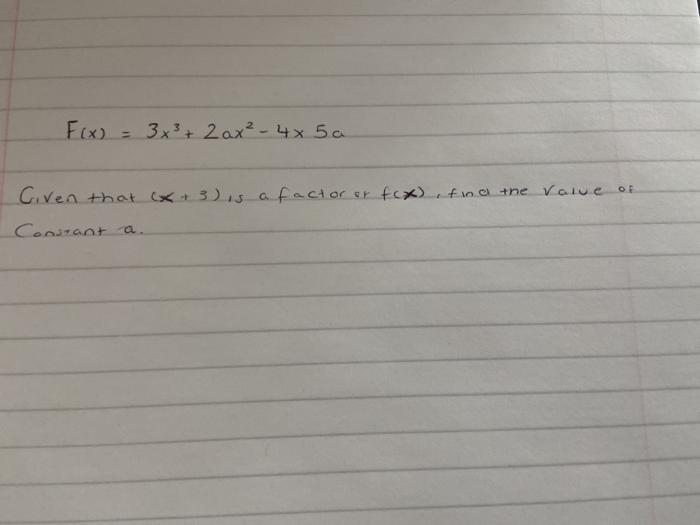 F(x) = 3x³ + 2ax² - 4x 5a
Given that (x + 3) is a factor of f(x), find the value of
Constant a.